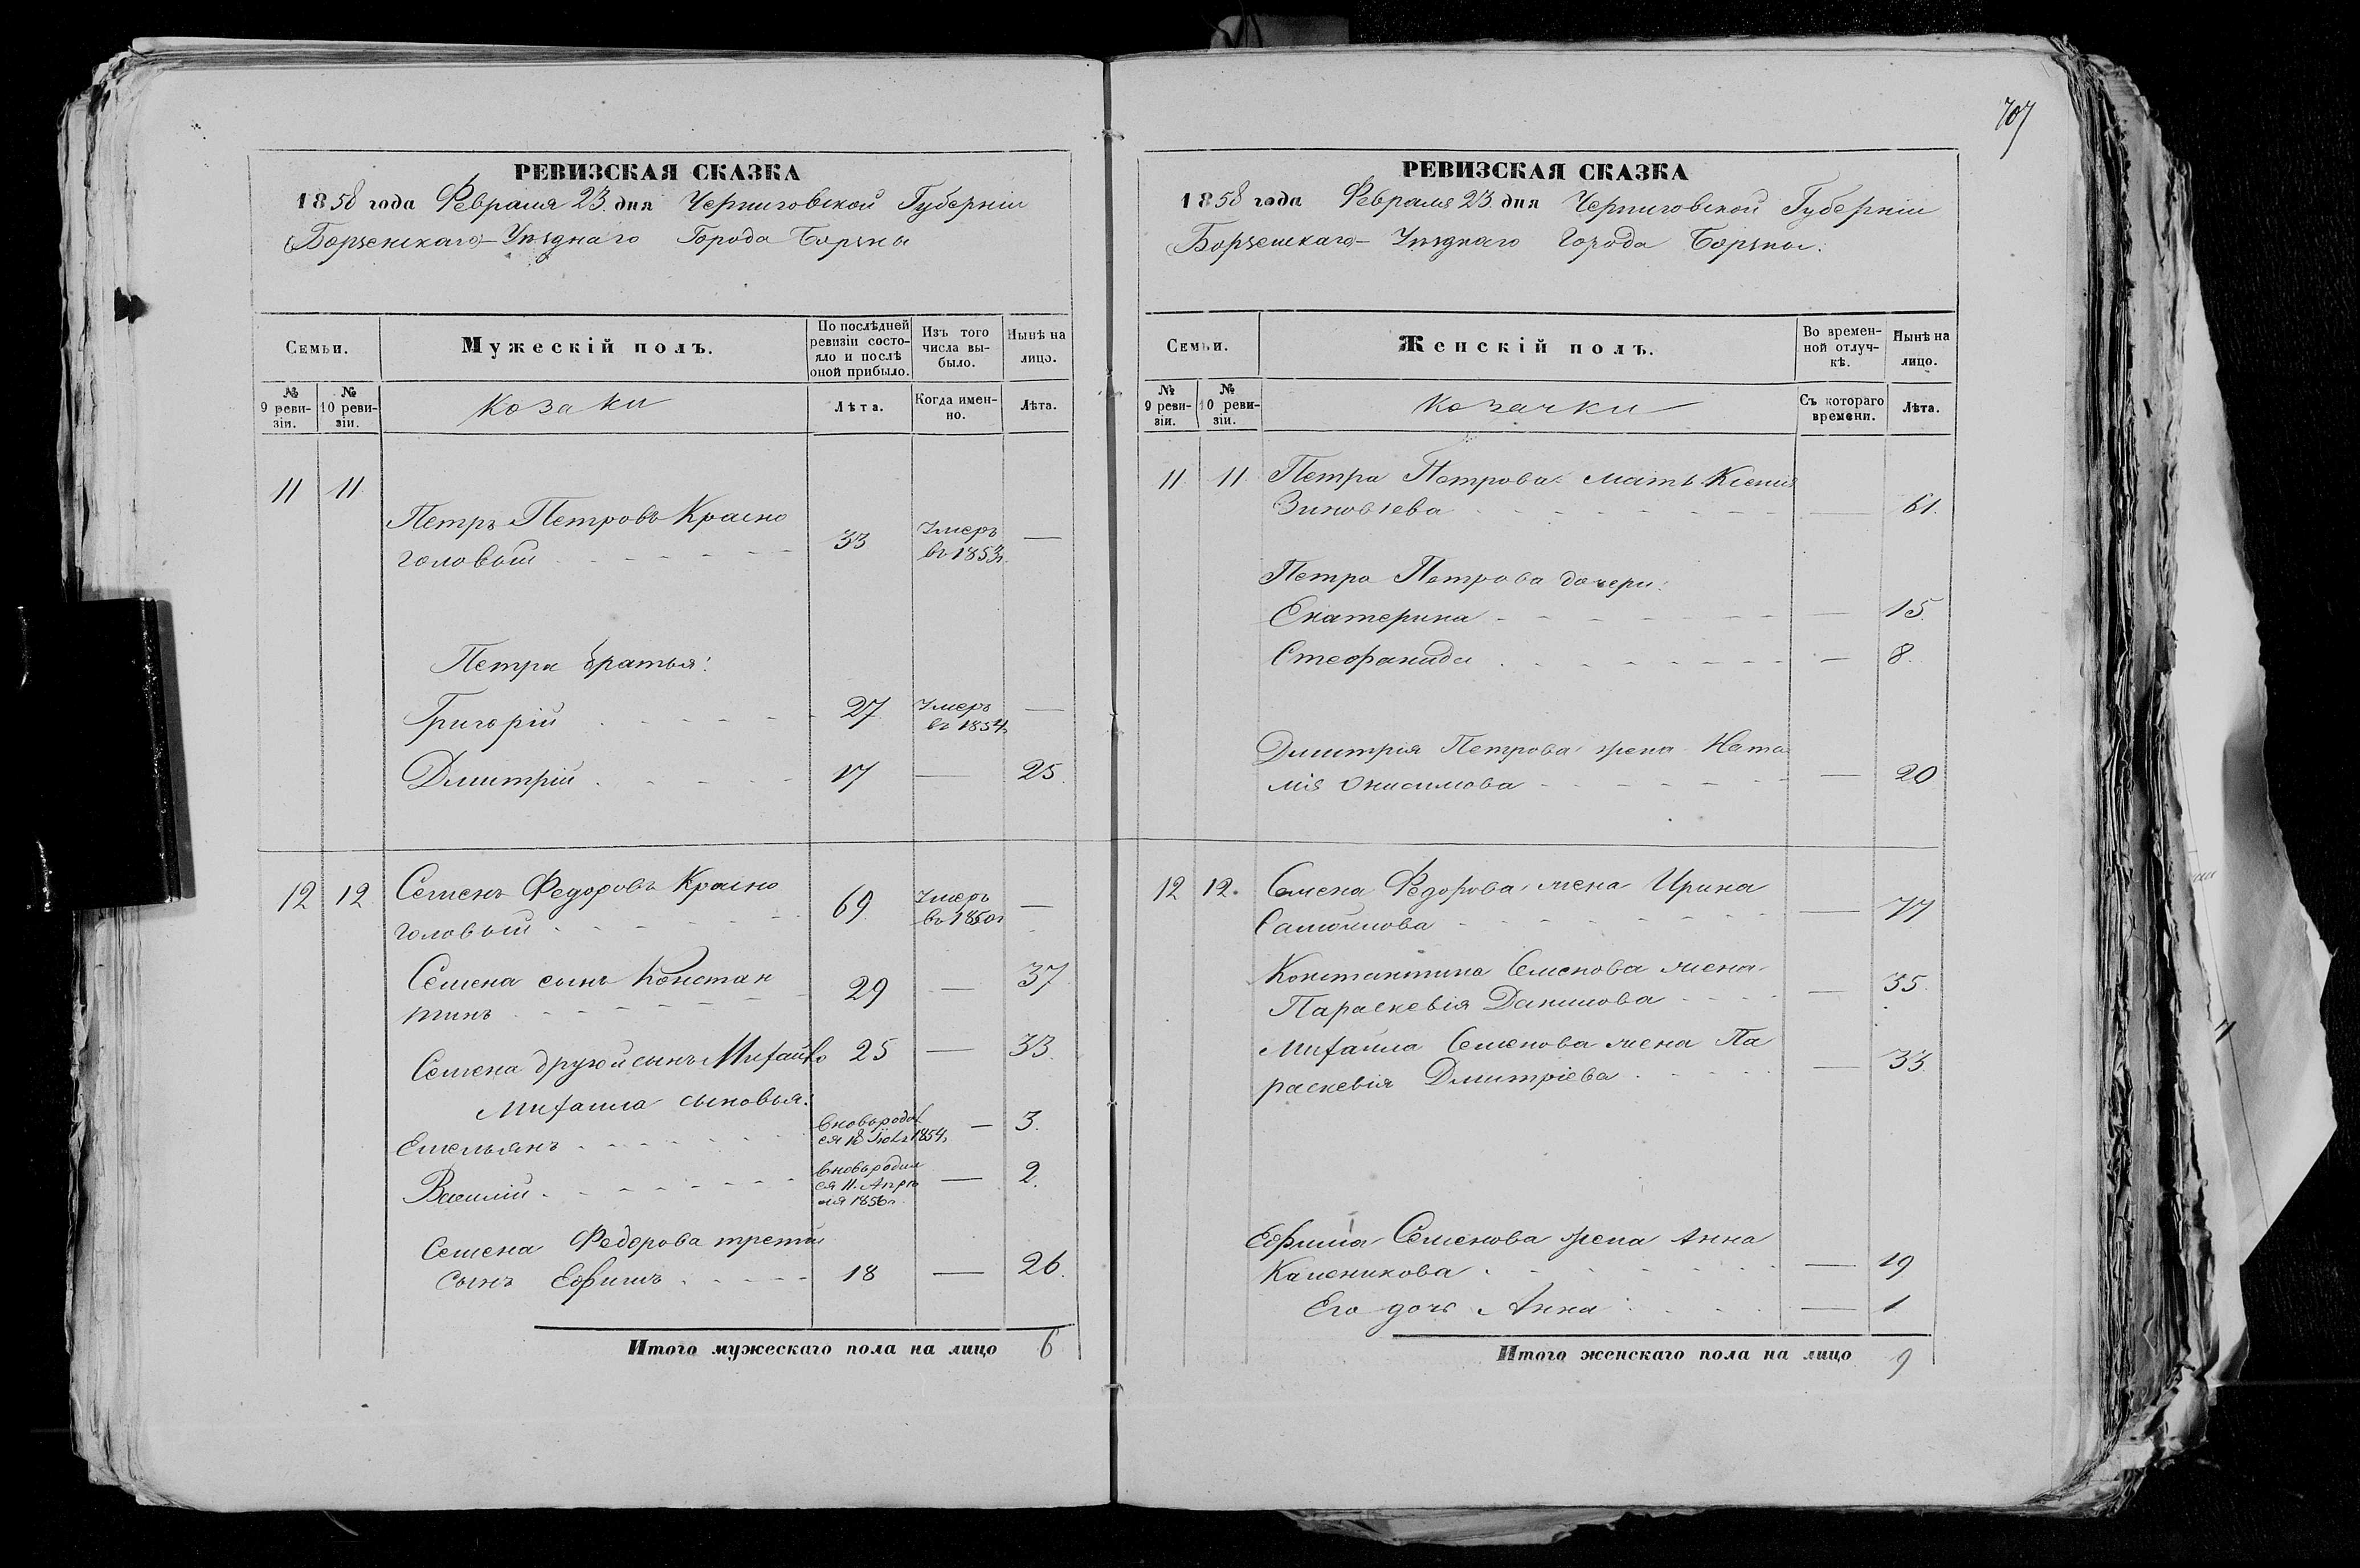 707
РЕВИЗСКАЯ СКАЗКА
1858 года Февраля 23 дня Черниговской Губерніи
Борзенскаго Уѣзднаго Города Борзны
Семьи.
Мужескій полъ.
По послѣдней ревизіи состояло и послѣ оной прибыло.
Изъ того числа выбыло.
Нынѣ на лицо.
№ 9 ревизіи.
№ 10 ревизіи.
Козаки
Лѣта.
Когда именно.
Лѣта.
11 11
Петръ Петровъ Красно
головый 33 Умеръ въ 1853г. —
Петра братья:
Григорій 27 Умеръ въ 1854г. —
Дмитрій 17 — 25.
12 12 Семенъ Федоровъ Красно
головый 69 Умеръ въ 1850г. —
Семена сынъ Констан
тинъ 29 — 37
Семена другой сынъ Михайло 25 — 33.
Михаила сыновья:
Емельянъ 1854г. — 3.
Василій вновь родил
ся 11. Апрѣ
ля 1856г. — 2.
Семена Федорова третій
сынъ Ефимъ 18 — 26.
Итого мужескаго пола на лицо 6
РЕВИЗСКАЯ СКАЗКА
1858 года Февраля 23 дня Черниговской Губерніи
Борзенскаго Уѣзднаго Города Борзны.
Семьи.
Женскій полъ.
Во временной отлучкѣ.
Нынѣ на лицо.
№ 9 ревизіи.
№ 10 ревизіи.
Козачки
Съ котораго времени.
Лѣта.
11 11 Петра Петрова мать Ксенія
Зиновіева — 61.
Петра Петрова дочери:
Екатерина — 15
Стефанида — 8.
Дмитрія Петрова жена Ната
лія Онисимова — 20
12 12. Семена Федорова жена Ирина
Самойлова — 77
Константина Семенова жена
Параскевія Данилова — 35.
Михаила Семенова жена Па
раскевія Дмитріева — 33.
Ефима Семенова жена Анна
Каленикова — 19
Его дочь Анна — 1
Итого женскаго пола на лицо 9